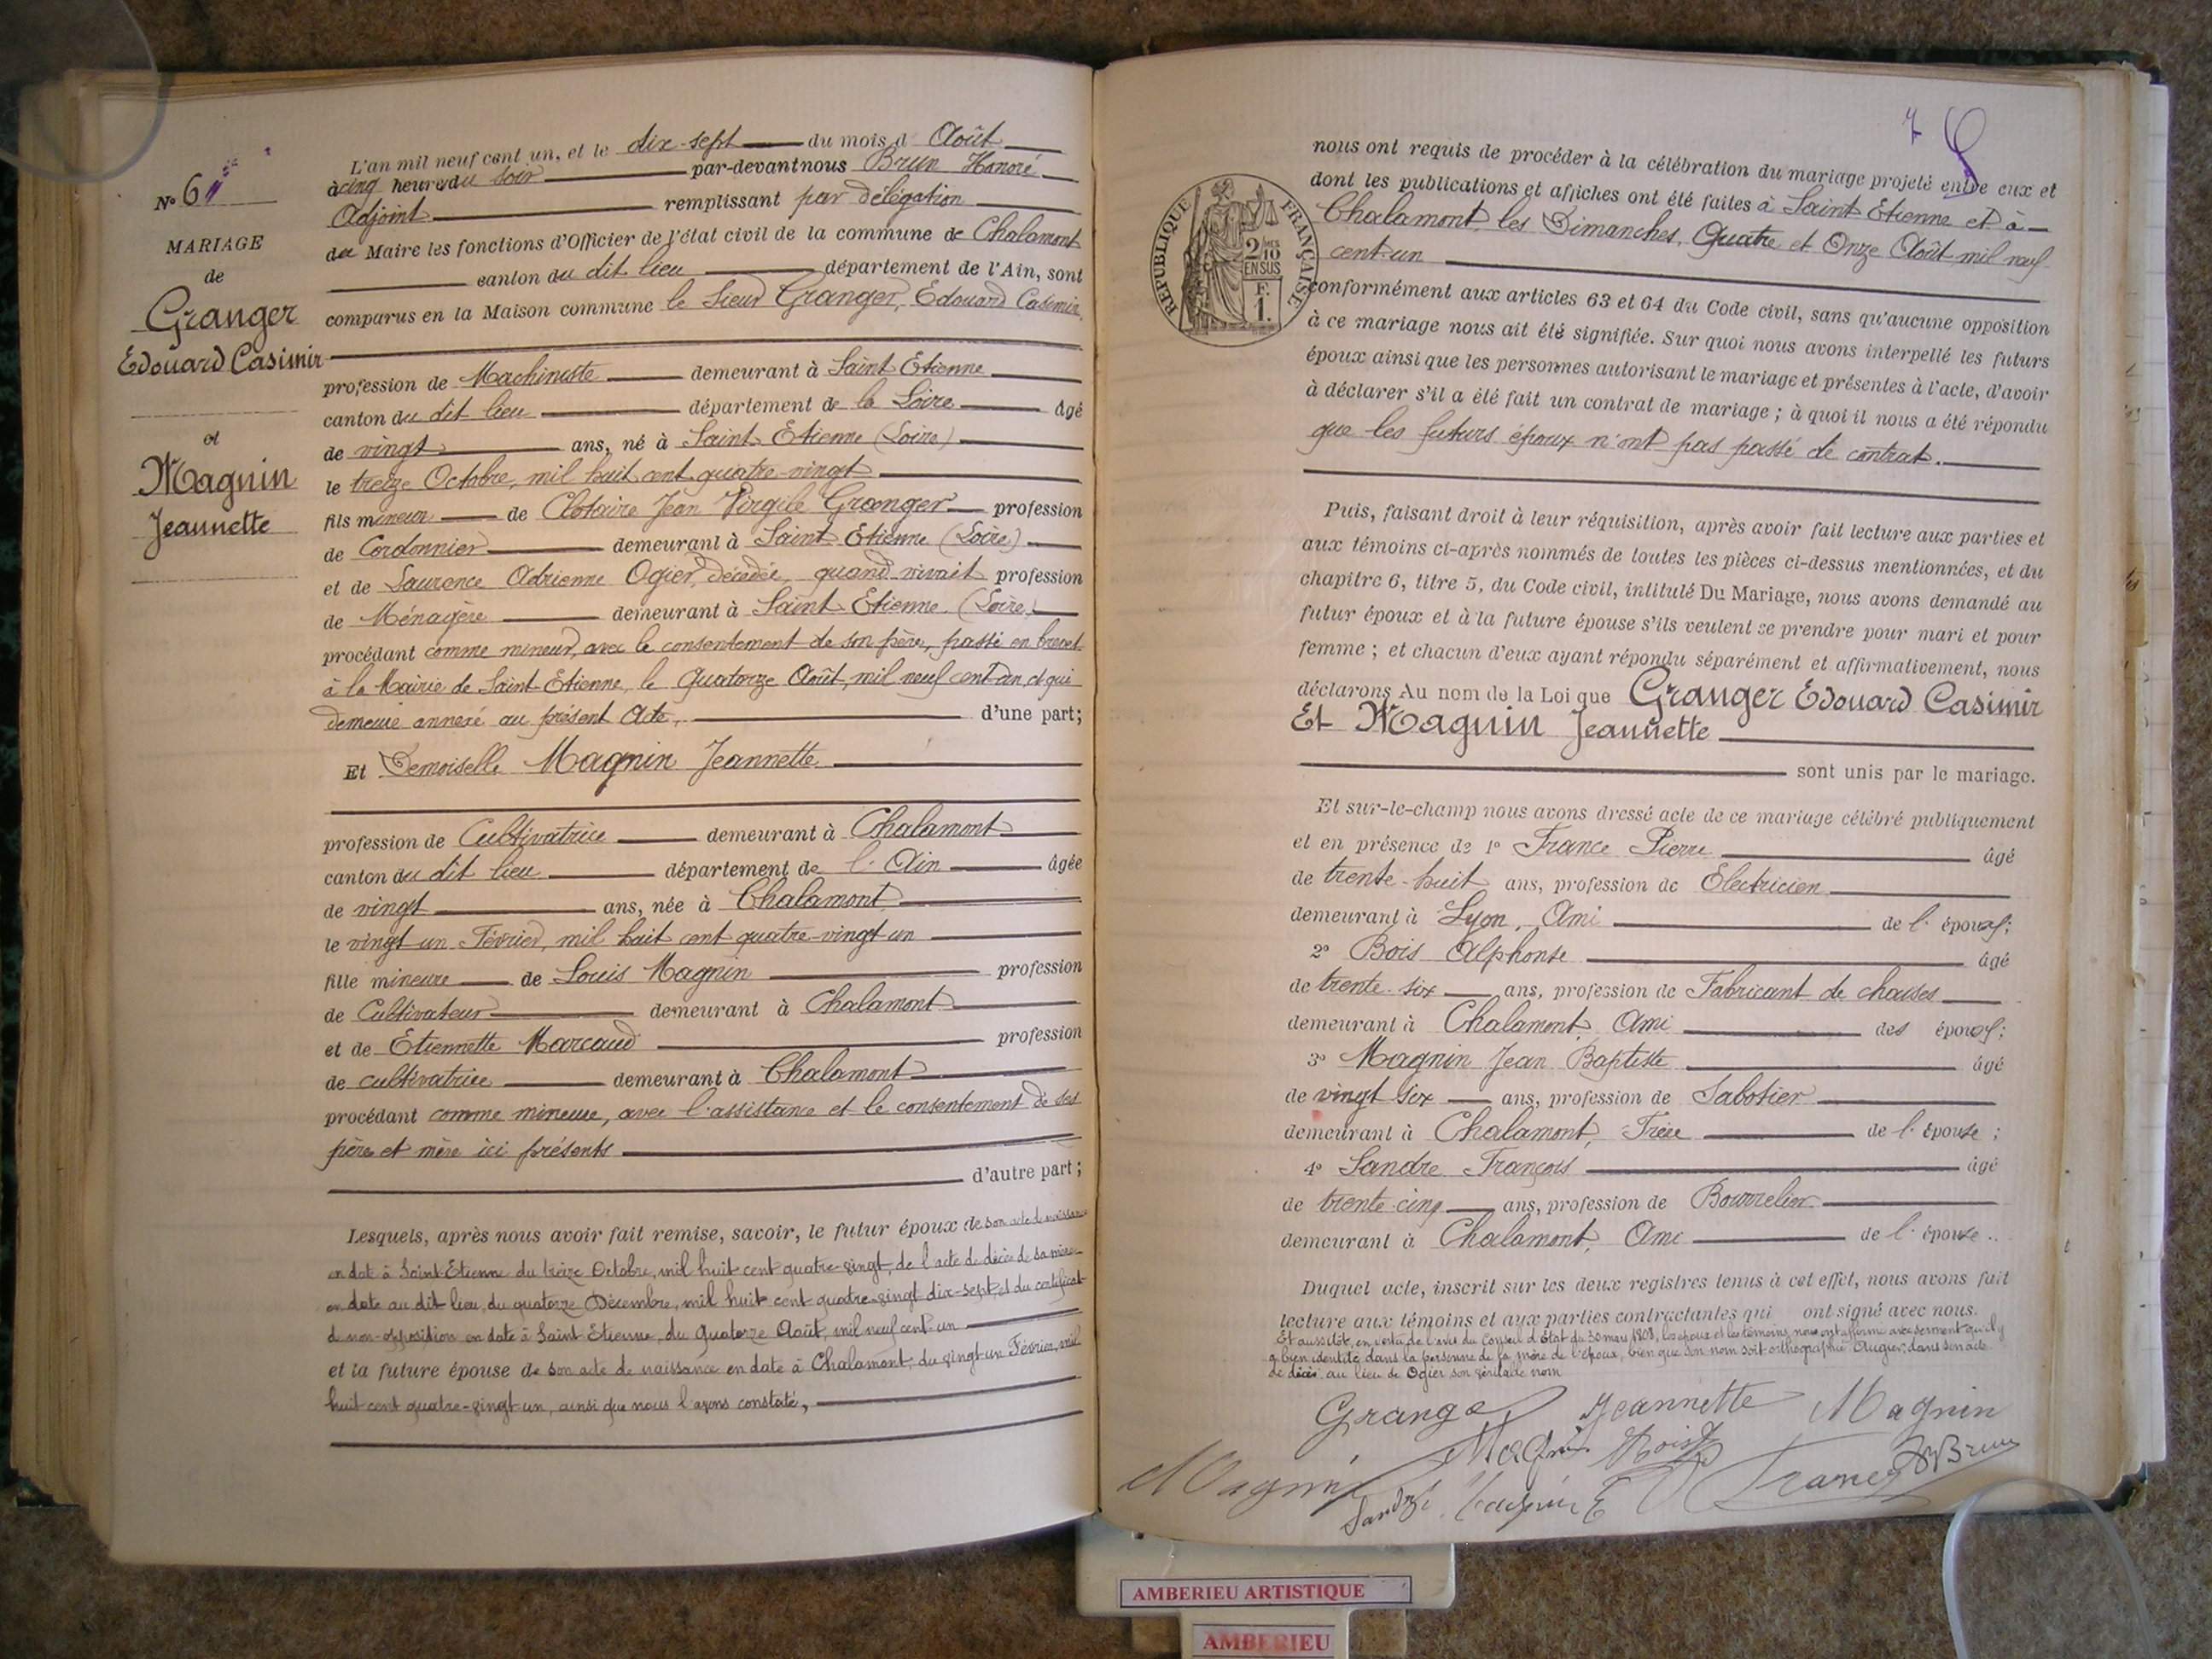 N° 6
MARIAGE
de
Granger
Edouard Casimir
et
Magnin
Jeannette
L'an mil neuf cent un, et le dix-sept du mois d Août
à cinq heures du soir par-devant nous Brun Honoré
Adjoint remplissant par délégation
du Maire les fonctions d'Officier de l'état civil de la commune de Chalamont
canton du dit lieu département de l'Ain, sont
comparus en la Maison commune le Sieur Granger, Edouard Casimir,
profession de Machiniste demeurant à Saint Etienne
canton du dit lieu département de la Loire âgé
de vingt ans, né à Saint Etienne (Loire)
le treize Octobre, mil huit cent quatre-vingt
fils mineur de Clotaire Jean Virgile Granger profession
de Cordonnier demeurant à Saint Etienne (Loire)
et de Laurence Adrienne Ogier, décédée, quand vivait profession
de Ménagère demeurant à Saint Etienne (Loire)
procédant comme mineur, avec le consentement de son père, passé en brevet
à la Mairie de Saint-Etienne, le Quatorze Août, mil neuf cent un, et qui
demeure annexé au présent Acte, d'une part;
Et Demoiselle Magnin Jeannette
profession de Cultivatrice demeurant à Chalamont
canton du dit lieu département de l'Ain âgée
de vingt ans, née à Chalamont
le vingt-un Février, mil huit cent quatre-vingt un
fille mineure de Louis Magnin profession
de Cultivateur demeurant à Chalamont
et de Etiennette Marcaud profession
de cultivatrice demeurant à Chalamont
procédant comme mineure, avec l'assistance et le consentement de ses
père et mère ici présents
d'autre part;
Lesquels, après nous avoir fait remise, savoir, le futur époux de son acte de naissance
en date à Saint-Etienne du treize Octobre, mil huit cent quatre-vingt, de l'acte de décès de sa mère
en date au dit lieu, du quatorze Décembre, mil huit cent quatre-vingt dix-sept, et du certificat
de non-opposition en date à Saint Etienne, du Quatorze Août, mil neuf cent un
et la future épouse de son acte de naissance en date à Chalamont, du vingt-un Février, mil
huit cent quatre-vingt-un, ainsi que nous l'avons constaté,
7
RÉPUBLIQUE FRANÇAISE
2/10
EN SUS
F.
1.
nous ont requis de procéder à la célébration du mariage projeté entre eux et
dont les publications et affiches ont été faites à Saint Etienne et à
Chalamont, les Dimanches, Quatre et Onze Août mil neuf
cent-un
conformément aux articles 63 et 64 du Code civil, sans qu'aucune opposition
à ce mariage nous ait été signifiée. Sur quoi nous avons interpellé les futurs
époux ainsi que les personnes autorisant le mariage et présentes à l'acte, d'avoir
à déclarer s'il a été fait un contrat de mariage; à quoi il nous a été répondu
que les futurs époux n'ont pas passé de contrat.
Puis, faisant droit à leur réquisition, après avoir fait lecture aux parties et
aux témoins ci-après nommés de toutes les pièces ci-dessus mentionnées, et du
chapitre 6, titre 5, du Code civil, intitulé Du Mariage, nous avons demandé au
futur époux et à la future épouse s'ils veulent se prendre pour mari et pour
femme; et chacun d'eux ayant répondu séparément et affirmativement, nous
déclarons Au nom de la Loi que Granger Edouard Casimir
Et Magnin Jeannette
sont unis par le mariage.
Et sur-le-champ nous avons dressé acte de ce mariage célébré publiquement
et en présence de 1° France Pierre âgé
de trente-huit ans, profession de Electricien
demeurant à Lyon, Ami de l'époux;
2° Bois Alphonse âgé
de trente-six ans, profession de Fabricant de chaises
demeurant à Chalamont, Ami des époux;
3° Magnin Jean Baptiste âgé
de vingt six ans, profession de Sabotier
demeurant à Chalamont, Frère de l'épouse;
4° Sandre François âgé
de trente-cinq ans, profession de Bourrelier
demeurant à Chalamont, Ami de l'épouse.
Duquel acte, inscrit sur les deux registres tenus à cet effet, nous avons fait
lecture aux témoins et aux parties contractantes qui ont signé avec nous.
Et aussitôt, en vertu de l'avis du Conseil d'Etat du 30 mars 1808, les époux et les témoins, nous ont affirmé avec serment qu'il y
a bien identité dans la personne de la mère de l'époux, bien que son nom soit orthographié Augier, dans son acte
de décès au lieu de Ogier son véritable nom
Granger Jeannette Magnin
Magnin Bois
Magnin Sandre France Brun
AMBERIEU ARTISTIQUE
AMBERIEU